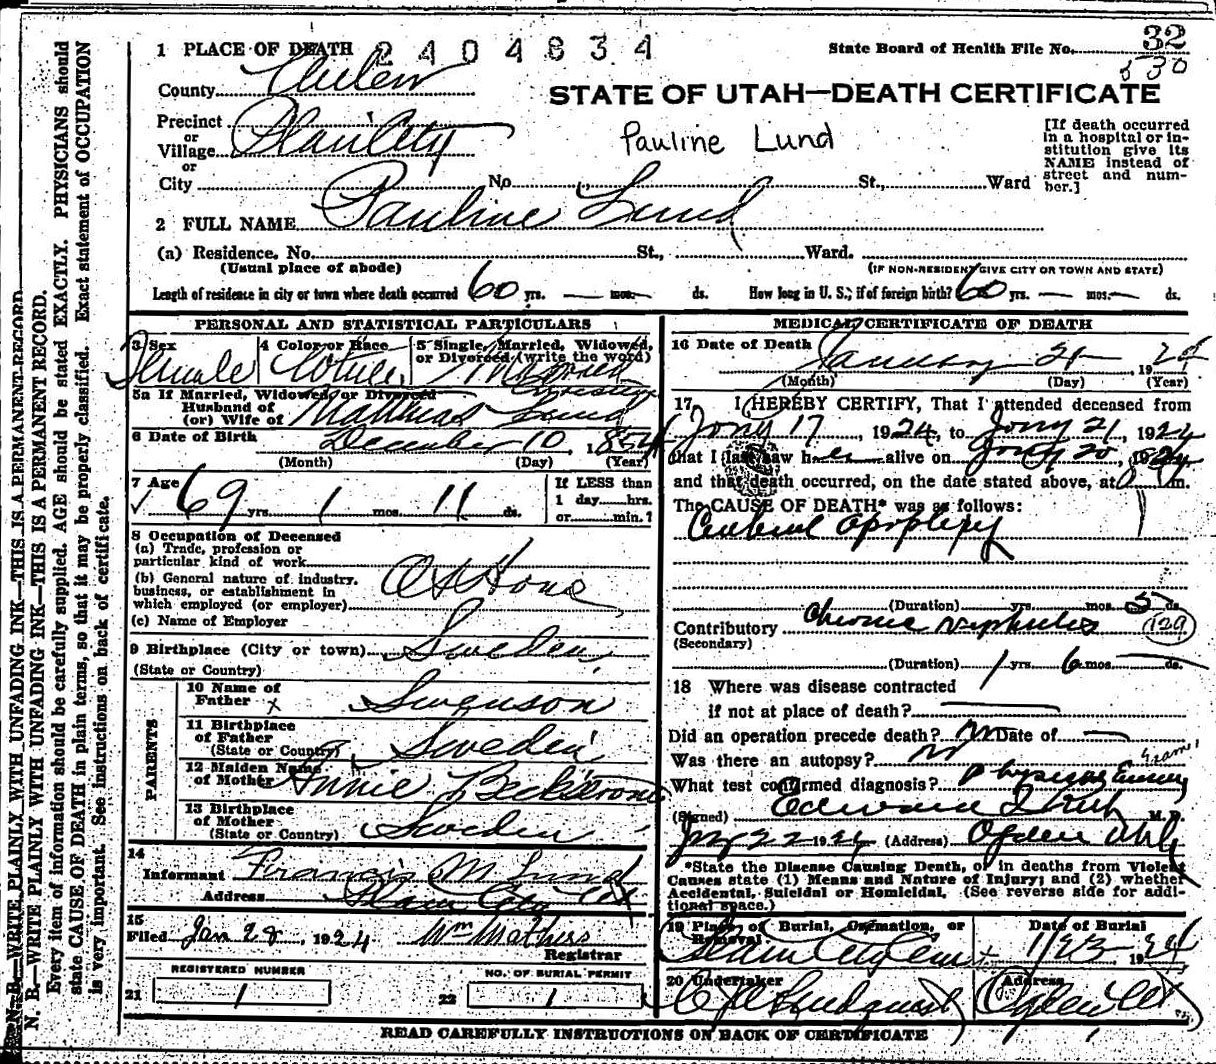 1 PLACE OF DEATH 2404834 State Board of Health File No. 32
530
County Weber
STATE OF UTAH—DEATH CERTIFICATE
Precinct
or
Village Plain City
Pauline Lund
[If death occurred
in a hospital or in-
stitution give its
NAME instead of
street and num-
ber.]
or
City No. St., Ward
2 FULL NAME Pauline Lund
(a) Residence. No. St., Ward.
(Usual place of abode) (IF NON-RESIDENT GIVE CITY OR TOWN AND STATE)
Length of residence in city or town where death occurred 60 yrs. — mos. ds. How long in U. S.; if of foreign birth? 60 yrs. — mos. — ds.
PERSONAL AND STATISTICAL PARTICULARS
3 Sex 4 Color or Race 5 Single, Married, Widowed,
or Divorced (write the word)
Female White Married
5a If Married, Widowed, or Divorced
Husband of
(or) Wife of Matthias Lund
6 Date of Birth December 10, 1854
(Month) (Day) (Year)
7 Age 69 yrs. 1 mos. 11 ds.
If LESS than
1 day hrs.
or min.?
8 Occupation of Deceased
(a) Trade, profession or
particular kind of work
At Home
(b) General nature of industry,
business, or establishment in
which employed (or employer)
(c) Name of Employer
9 Birthplace (City or town) Sweden
(State or Country)
PARENTS
10 Name of
Father x Swenson
11 Birthplace
of Father Sweden
(State or Country)
12 Maiden Name
of Mother Annie
13 Birthplace
of Mother Sweden
(State or Country)
14
Informant Francis M Lund
Address Plain City Ut
15
Filed Jan 28, 1924 Wm Mathers
Registrar
REGISTERED NUMBER NO. OF BURIAL PERMIT
21 1 22 1
MEDICAL CERTIFICATE OF DEATH
16 Date of Death January 21 1924
(Month) (Day) (Year)
17 I HEREBY CERTIFY, That I attended deceased from
Jany 17, 1924, to Jany 21, 1924
that I last saw her alive on Jany 20, 1924
and that death occurred, on the date stated above, at m.
The CAUSE OF DEATH* was as follows:
Cerebral apoplexy
(Duration) yrs. mos. 5 ds.
Contributory Chronic nephritis 129
(Secondary)
(Duration) 1 yrs. 6 mos. — ds.
18 Where was disease contracted
if not at place of death? —
Did an operation precede death? no Date of —
Was there an autopsy? no
What test confirmed diagnosis? Physical
(Signed) Edward M.D.
Jany 22 1924 (Address) Ogden Utah
*State the Disease Causing Death, or in deaths from Violent
Causes state (1) Means and Nature of Injury; and (2) whether
Accidental, Suicidal or Homicidal. (See reverse side for addi-
tional space.)
19 Place of Burial, Cremation, or
Removal Date of Burial
Plain City Cem 1/23 1924
20 Undertaker Address
Lindquist Ogden Ut
READ CAREFULLY INSTRUCTIONS ON BACK OF CERTIFICATE
N. B.—WRITE PLAINLY WITH UNFADING INK—THIS IS A PERMANENT RECORD.
N. B.—WRITE PLAINLY WITH UNFADING INK—THIS IS A PERMANENT RECORD.
Every item of information should be carefully supplied. AGE should be stated EXACTLY. PHYSICIANS should
state CAUSE OF DEATH in plain terms, so that it may be properly classified. Exact statement of OCCUPATION
is very important. See instructions on back of certificate.